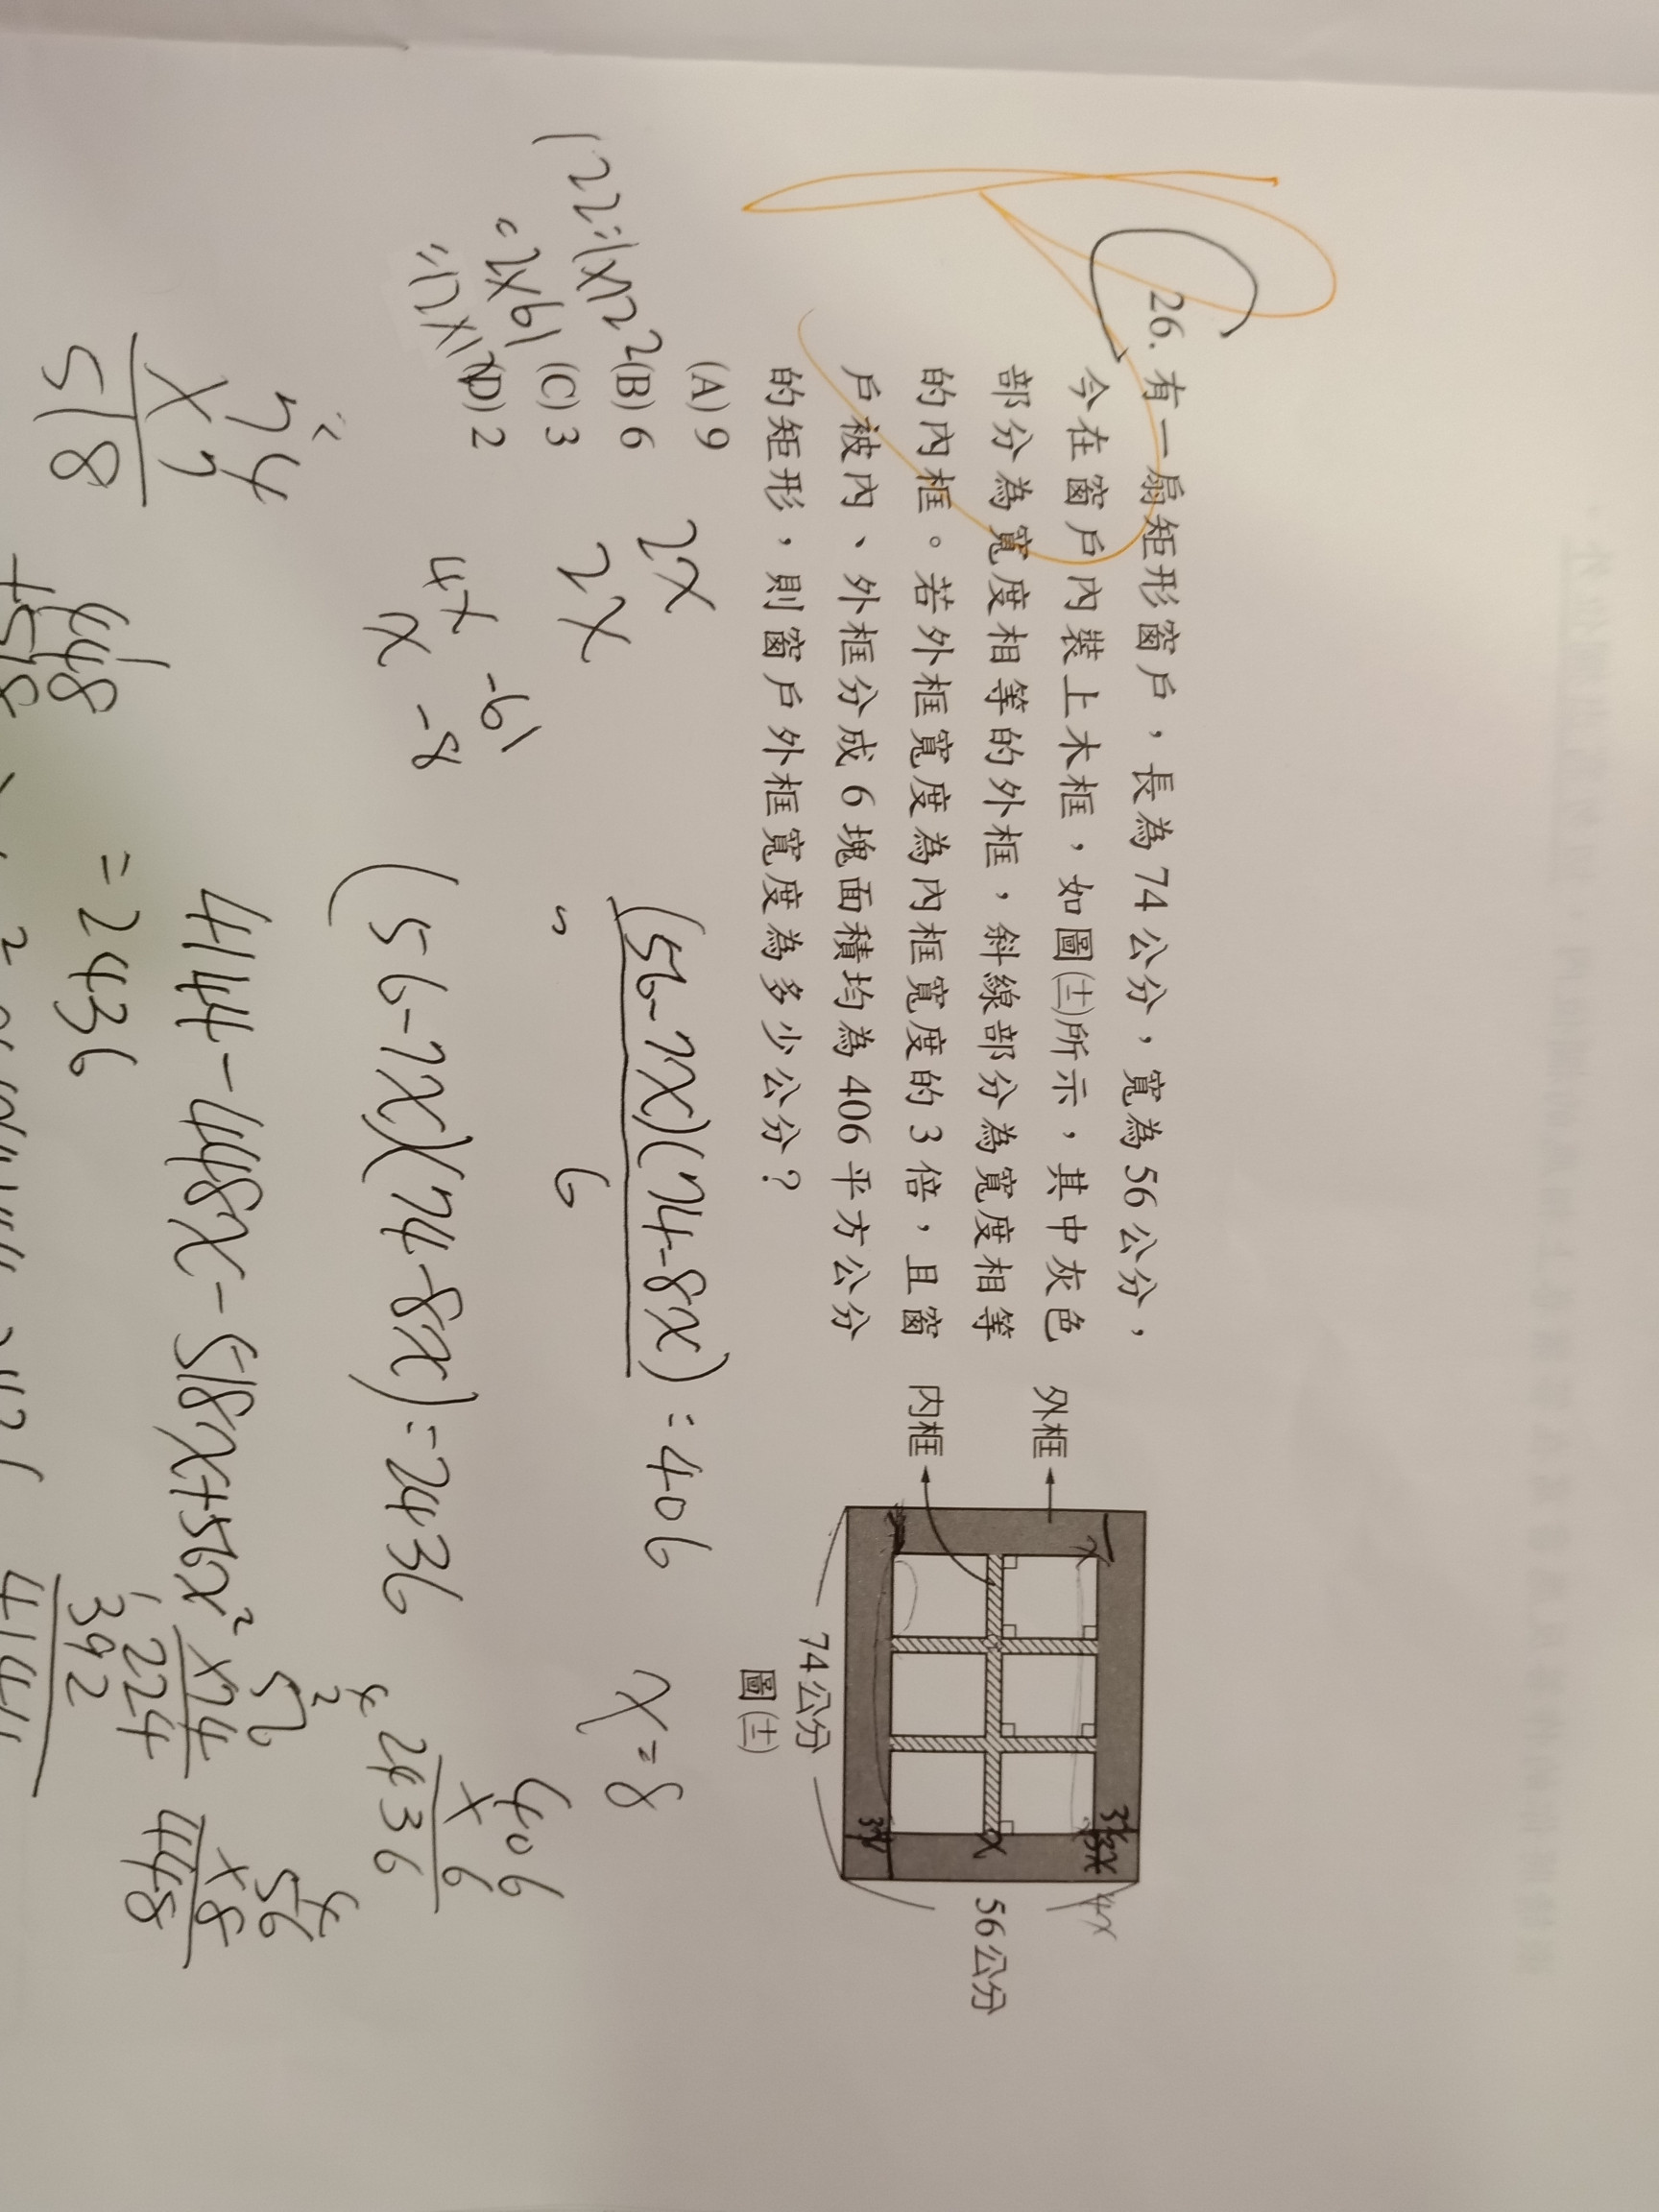 26. 有一扇矩形窗戶，長為 74 公分，寬為 56 公分，
今在窗戶內裝上木框，如圖(十二)所示，其中灰色
部分為寬度相等的外框，斜線部分為寬度相等
的內框。若外框寬度為內框寬度的 3 倍，且窗
戶被內、外框分成 6 塊面積均為 406 平方公分
的矩形，則窗戶外框寬度為多少公分？
(A) 9
(B) 6
(C) 3
(D) 2
外框
內框
74公分
56公分
圖(十二)
3x
x
3x
4x
2x
2x
4x -61
x -8
(56-7x)(74-8x) = 406
6
x=8
(56-7x)(74-8x)=2436
4144-448x-518x+56x²
=2436
406
x 6
2436
56
x74
224
392
4144
56
x8
448
74
x7
518
448
+518